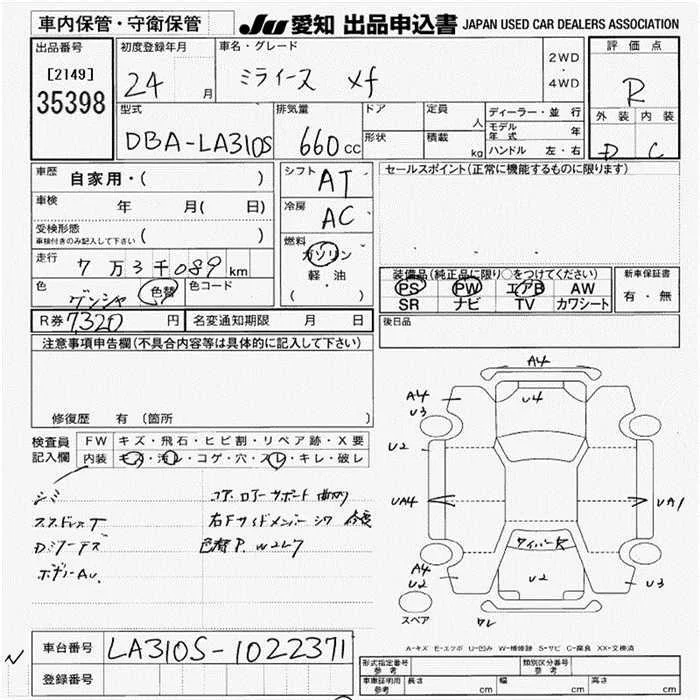 車内保管・守衛保管
JU 愛知 出品申込書 JAPAN USED CAR DEALERS ASSOCIATION
出品番号
[2149]
35398
初度登録年月
24 月
車名・グレード
ミライース Xf
2WD
・
4WD
評価点
R
外装 内装
D C
型式
DBA-LA310S
排気量
660 cc
ドア
形状
定員
人
積載
kg
ディーラー・並行
モデル年式 年
ハンドル 左・右
車歴 自家用・( )
車検 年 月( 日)
受検形態
車検付きのみ記入して下さい ( )
走行 7万3千089km
色 ゲンシャ 色替 色コード
R券 7320 円 名変通知期限 月 日
シフト AT
冷房 AC
燃料
ガソリン
軽油
( ・ )
セールスポイント(正常に機能するものに限ります)
装備品(純正品に限り○をつけてください)
PS PW エアB AW
SR ナビ TV カワシート
新車保証書
有・無
後日品
注意事項申告欄(不具合内容等は具体的に記入して下さい)
修復歴 有 (箇所 )
検査員
記入欄
FW キズ・飛石・ヒビ割・リペア跡・X要
内装 キズ・汚レ・コゲ・穴・スレ・キレ・破レ
シミ
スタッドレスT
コア、ロアーサポート 曲リ
右Fサイドメンバー シワ
色替 P. W2レ7
A4
A4
U3
U4
U2
UA4
UA1
タイバー欠
A4
U2
U2
U3
スペア
ワレ
A-キズ E-エクボ U-凹ミ W-補修跡 S-サビ C-腐食 XX-交換済
N
車台番号 LA310S-1022371
登録番号
形式指定番号
参考
類別区分番号
参考
車庫証明用
参考
長さ cm 幅 cm 高さ cm